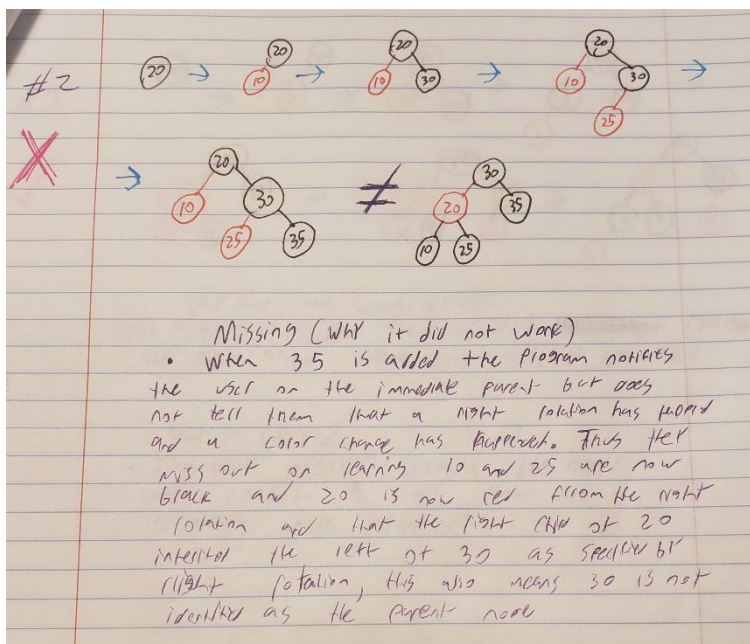 #2
20 → 20 10 → 20 10 30 → 20 10 30 25 →
X
→ 20 10 30 25 35 ≠ 30 20 35 10 25
Missing (Why it did not work)
• When 35 is added the Program notifies
the user on the immediate parent but does
not tell them that a right rotation has
and a color change has happened. Thus they
miss out on learning 10 and 25 are now
black and 20 is now red from the right
rotation and that the right child of 20
inherited the left of 30 as specified by
right rotation, this also means 30 is not
identified as the parent node